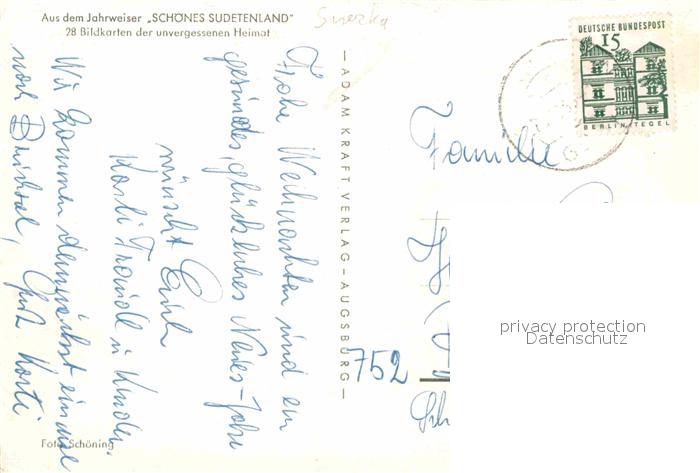 Aus dem Jahrweiser „SCHÖNES SUDETENLAND"
28 Bildkarten der unvergessenen Heimat
Frohe Weihnachten und ein
gesundes, glückliches Neues-Jahr
wünscht Euch
Karli Traudl u Kinder.
Wir kommen demnächst einmal
nach Bruchsal, Gruß Karli
Foto Schöning
— ADAM KRAFT VERLAG – AUGSBURG —
DEUTSCHE BUNDESPOST
15
BERLIN-TEGEL
Familie
752
privacy protection
Datenschutz